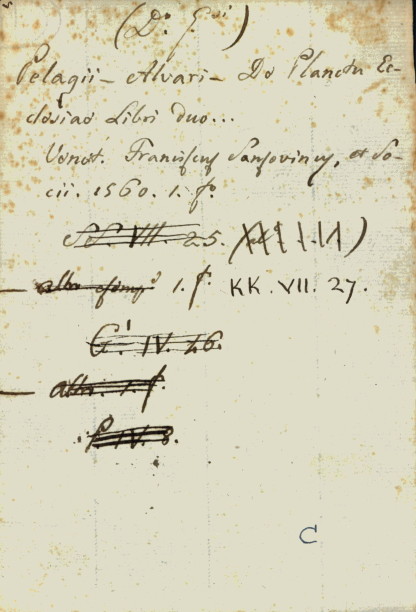 (D.º G.oi)
Pelagii - Alvari - De Planctu Ec-
clesiae Libri duo...
Venet. Franciscus Sansovinus, et So-
cii. 1560. 1. f.º
SS. VII. 25.
altro esemp.e 1. f.º KK. VII. 27.
G. IV. 26.
altro. 1. f.
P. IV. 8.
C